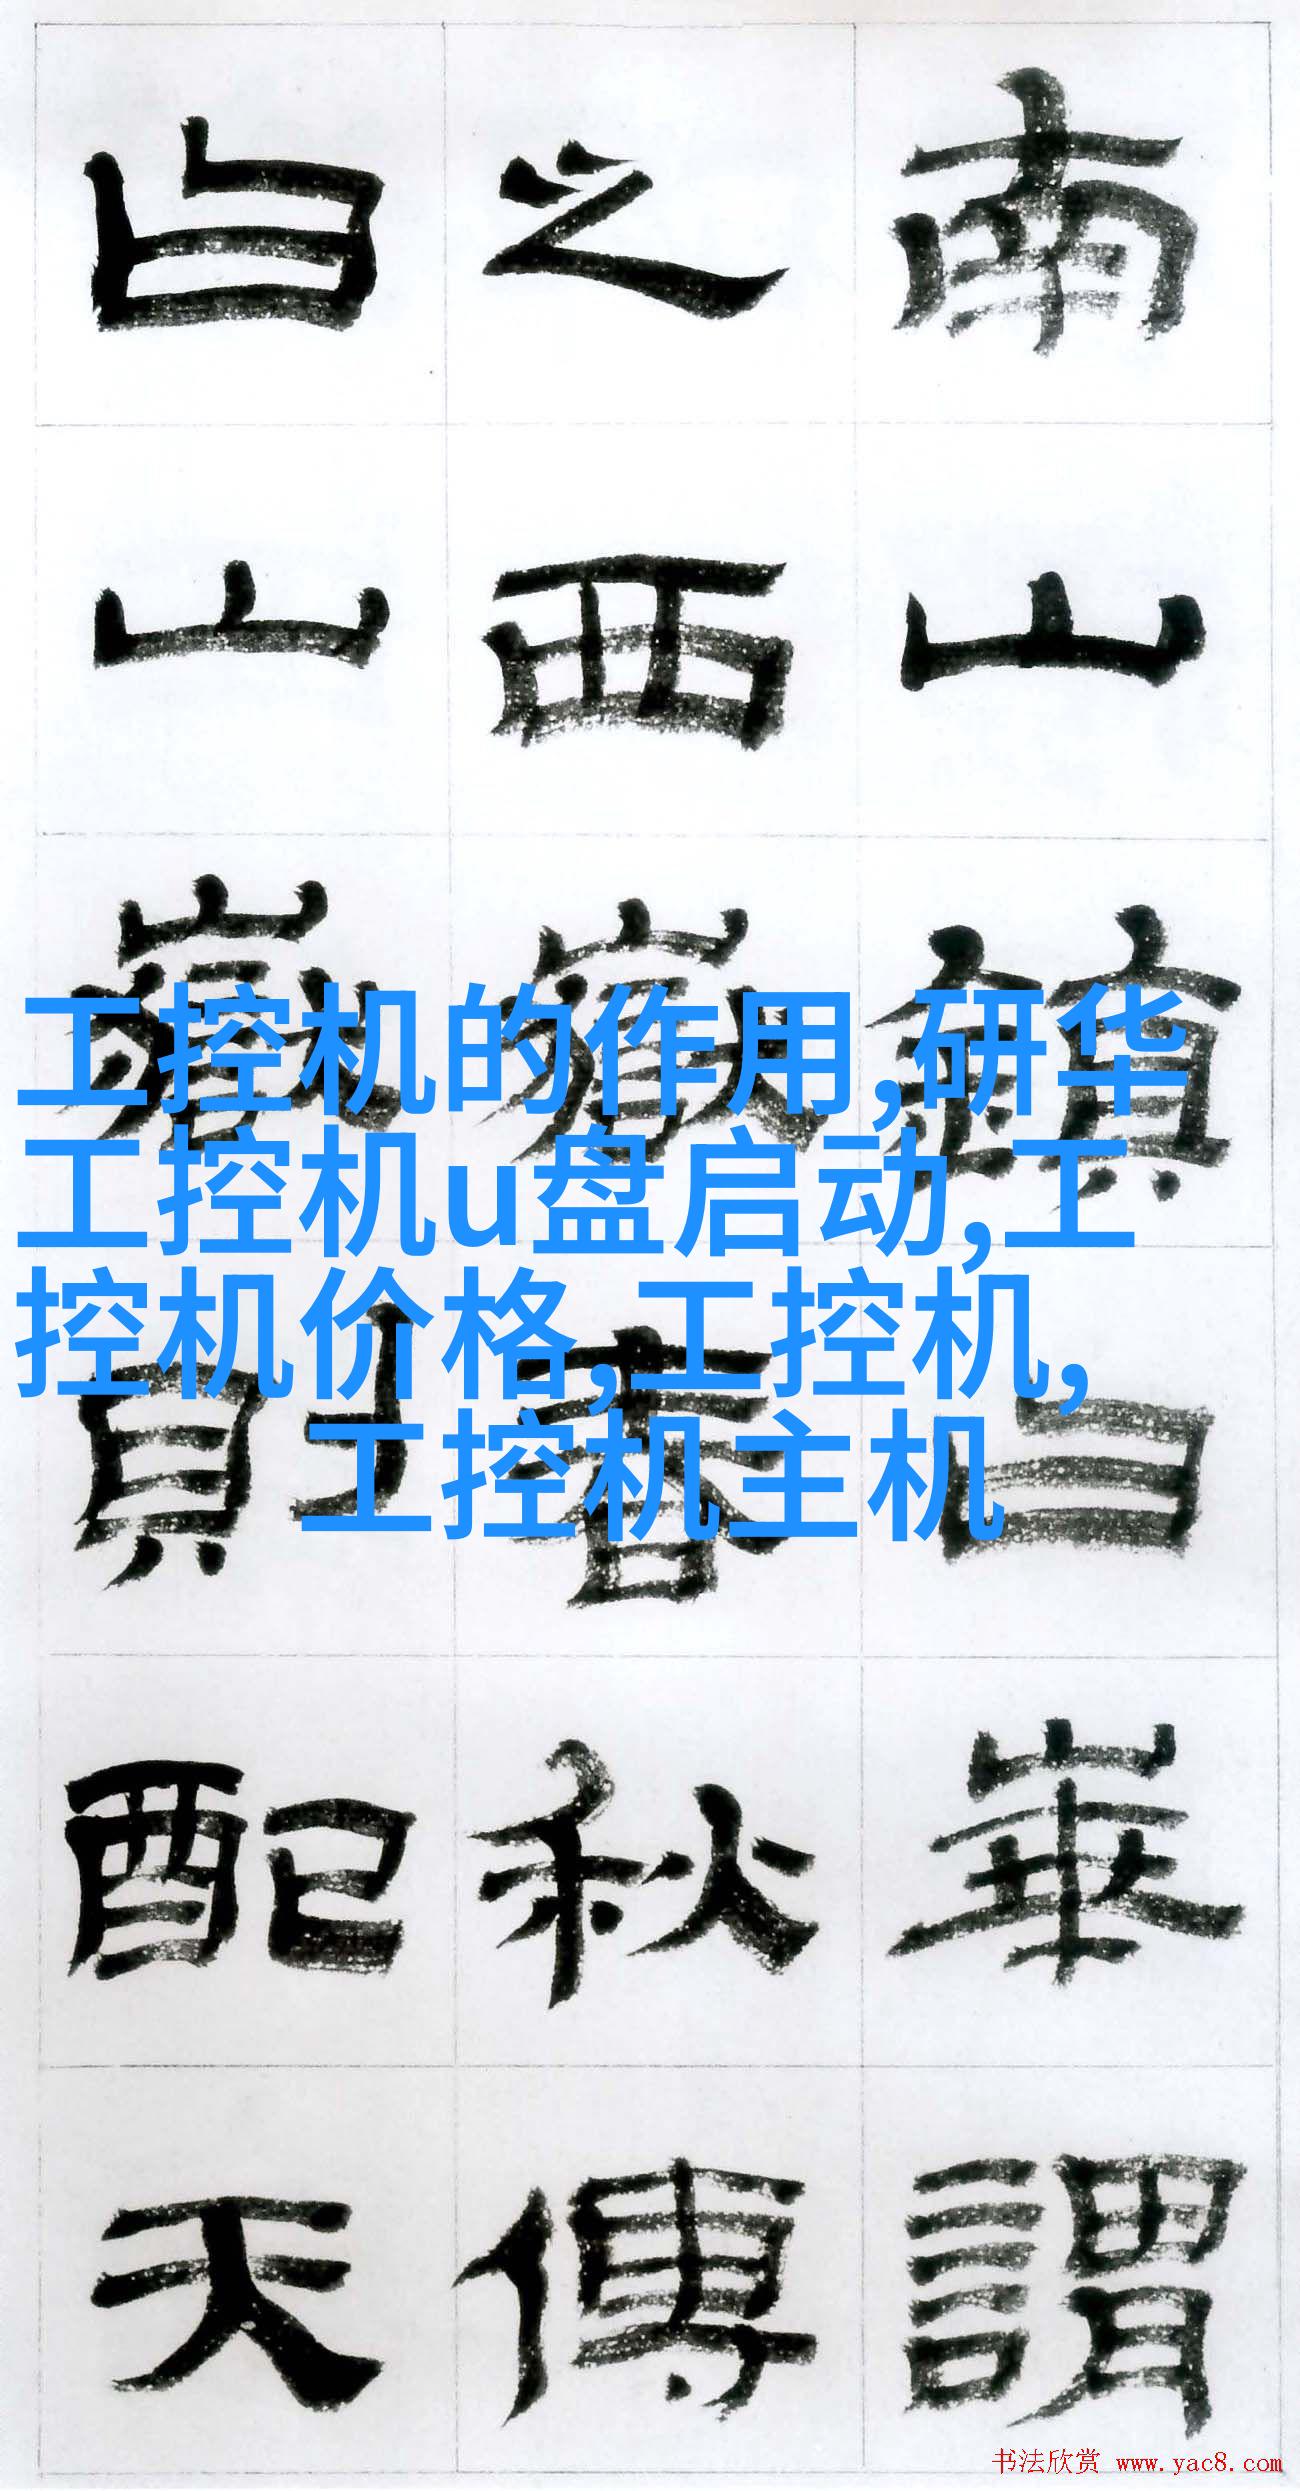 南山鎮曰崋謂
之西嶽春秋傳
曰山嶽則配天
工控机的作用,研华
工控机u盘启动,工
控机价格,工控机,
工控机主机
书法欣赏 www.yac8.com